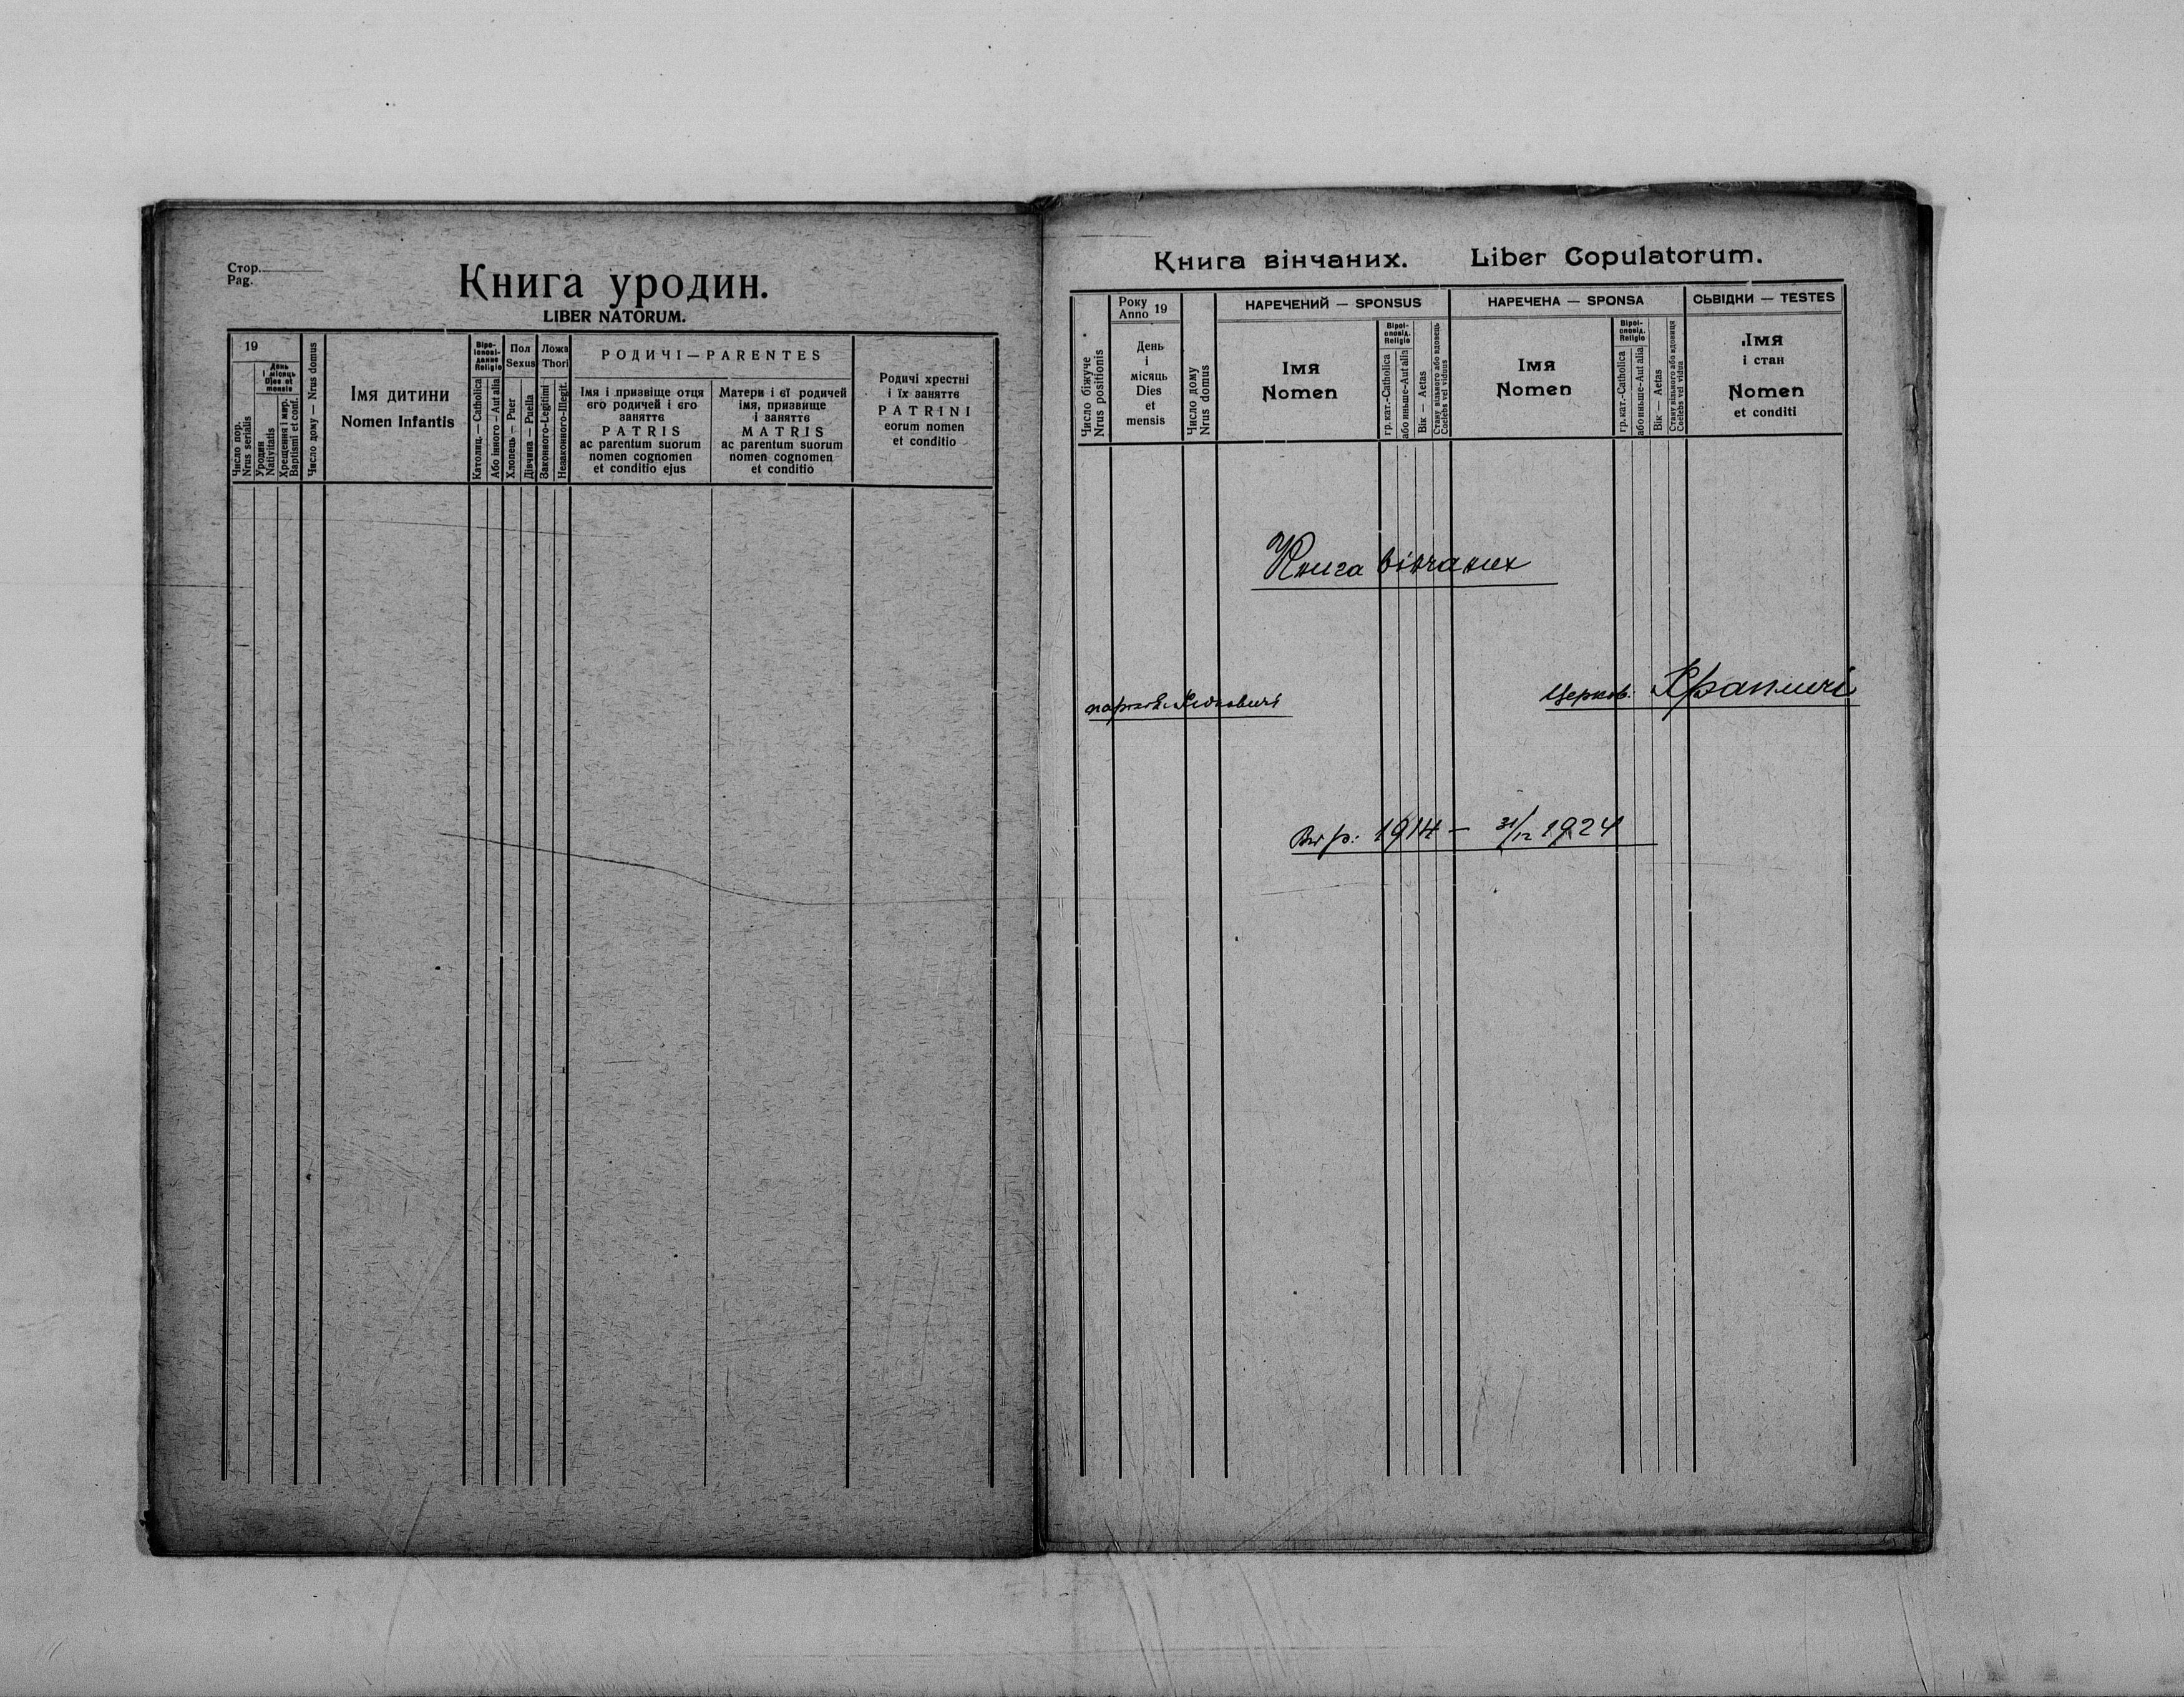 Стор.
Pag.
Книга уродин.
LIBER NATORUM.
19
День
і місяць
Dies et
mensis
Число пор.
Nrus serialis
Уродин
Nativitatis
Хрещення і мир.
Baptismi et conf.
Число дому — Nrus domus
Імя дитини
Nomen Infantis
Religio
Католиц. — Catholica
Або інного — Aut alia
Пол
Sexus
Хлопець — Puer
Дївчина — Puella
Ложа
Thori
Законного-Legitimi
Незаконного-Illegit.
РОДИЧІ — PARENTES
Імя і призвіще отця
єго родичей і єго
заняттє
PATRIS
ac parentum suorum
nomen cognomen
et conditio ejus
Матери і єї родичей
імя, призвище
і заняттє
MATRIS
ac parentum suorum
nomen cognomen
et conditio
Родичі хрестні
і їх заняттє
PATRINI
eorum nomen
et conditio
Книга вінчаних. Liber Copulatorum.
Число біжуче
Nrus positionis
Року
Anno 19
День
і
місяць
Dies
et
mensis
Число дому
Nrus domus
НАРЕЧЕНИЙ — SPONSUS
Імя
Nomen
Віроі-
сповід.
Religio
гр.кат.-Catholica
або инньше-Aut alia
Вік — Aetas
Стану вільного або вдовець
Coelebs vel viduus
НАРЕЧЕНА — SPONSA
Імя
Nomen
Віроі-
сповід.
Religio
гр.кат.-Catholica
або инньше-Aut alia
Вік — Aetas
Стану вільного або вдовиця
Coelebs vel vidua
СЬВІДКИ — TESTES
Імя
і стан
Nomen
et conditi
Книга вінчаних
церков. Храпличі
Від р: 1914 — 31/12 1924